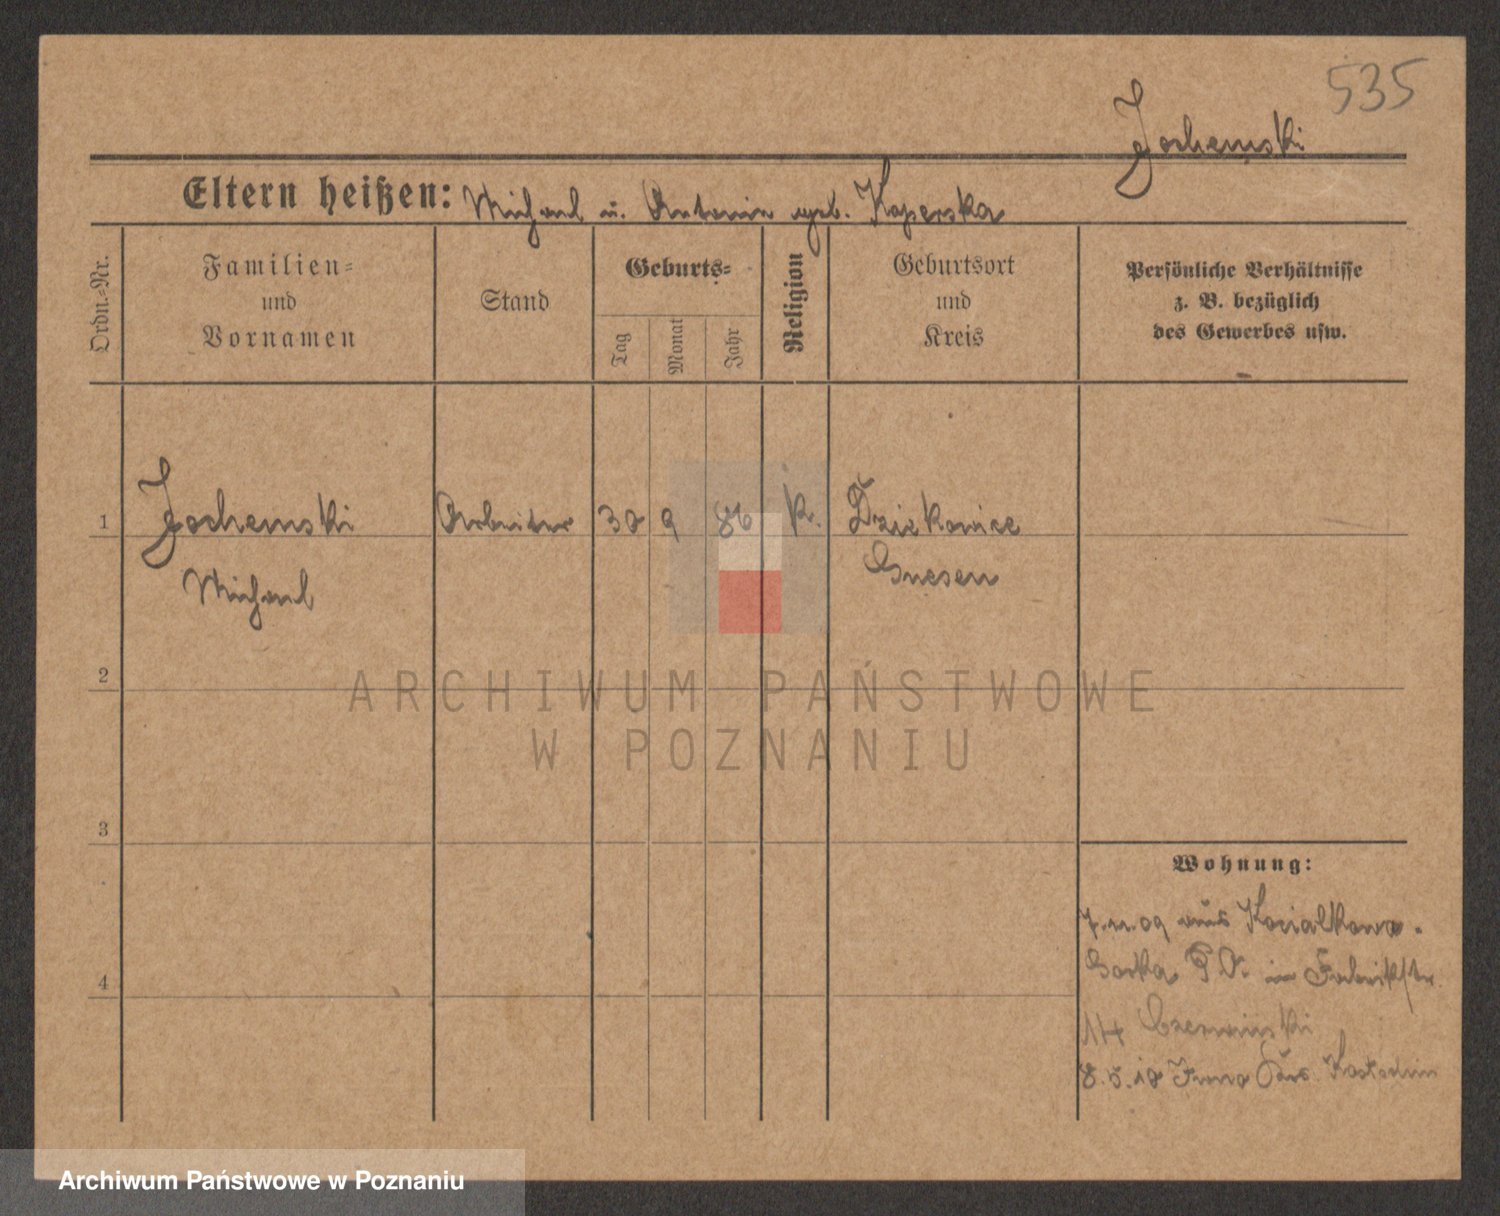 535
Jochemski
Eltern heißen: Michael u. Antonie geb. Kaperska
Ordn.=Nr.
Familien=
und
Vornamen
Stand
Geburts=
Tag
Monat
Jahr
Religion
Geburtsort
und
Kreis
Persönliche Verhältnisse
z. B. bezüglich
des Gewerbes usw.
1 Jochemski Arbeiter 30 9 86 k. Dziekanice
Michael Gnesen
2
3
4
Wohnung:
7.11.09 aus
Gorka in Fabrikstr.
Czerwinski
8.5.10
ARCHIWUM PAŃSTWOWE
W POZNANIU
Archiwum Państwowe w Poznaniu